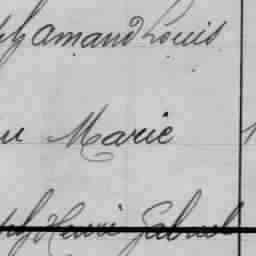 Amand Louis
Marie
Henri Gabriel